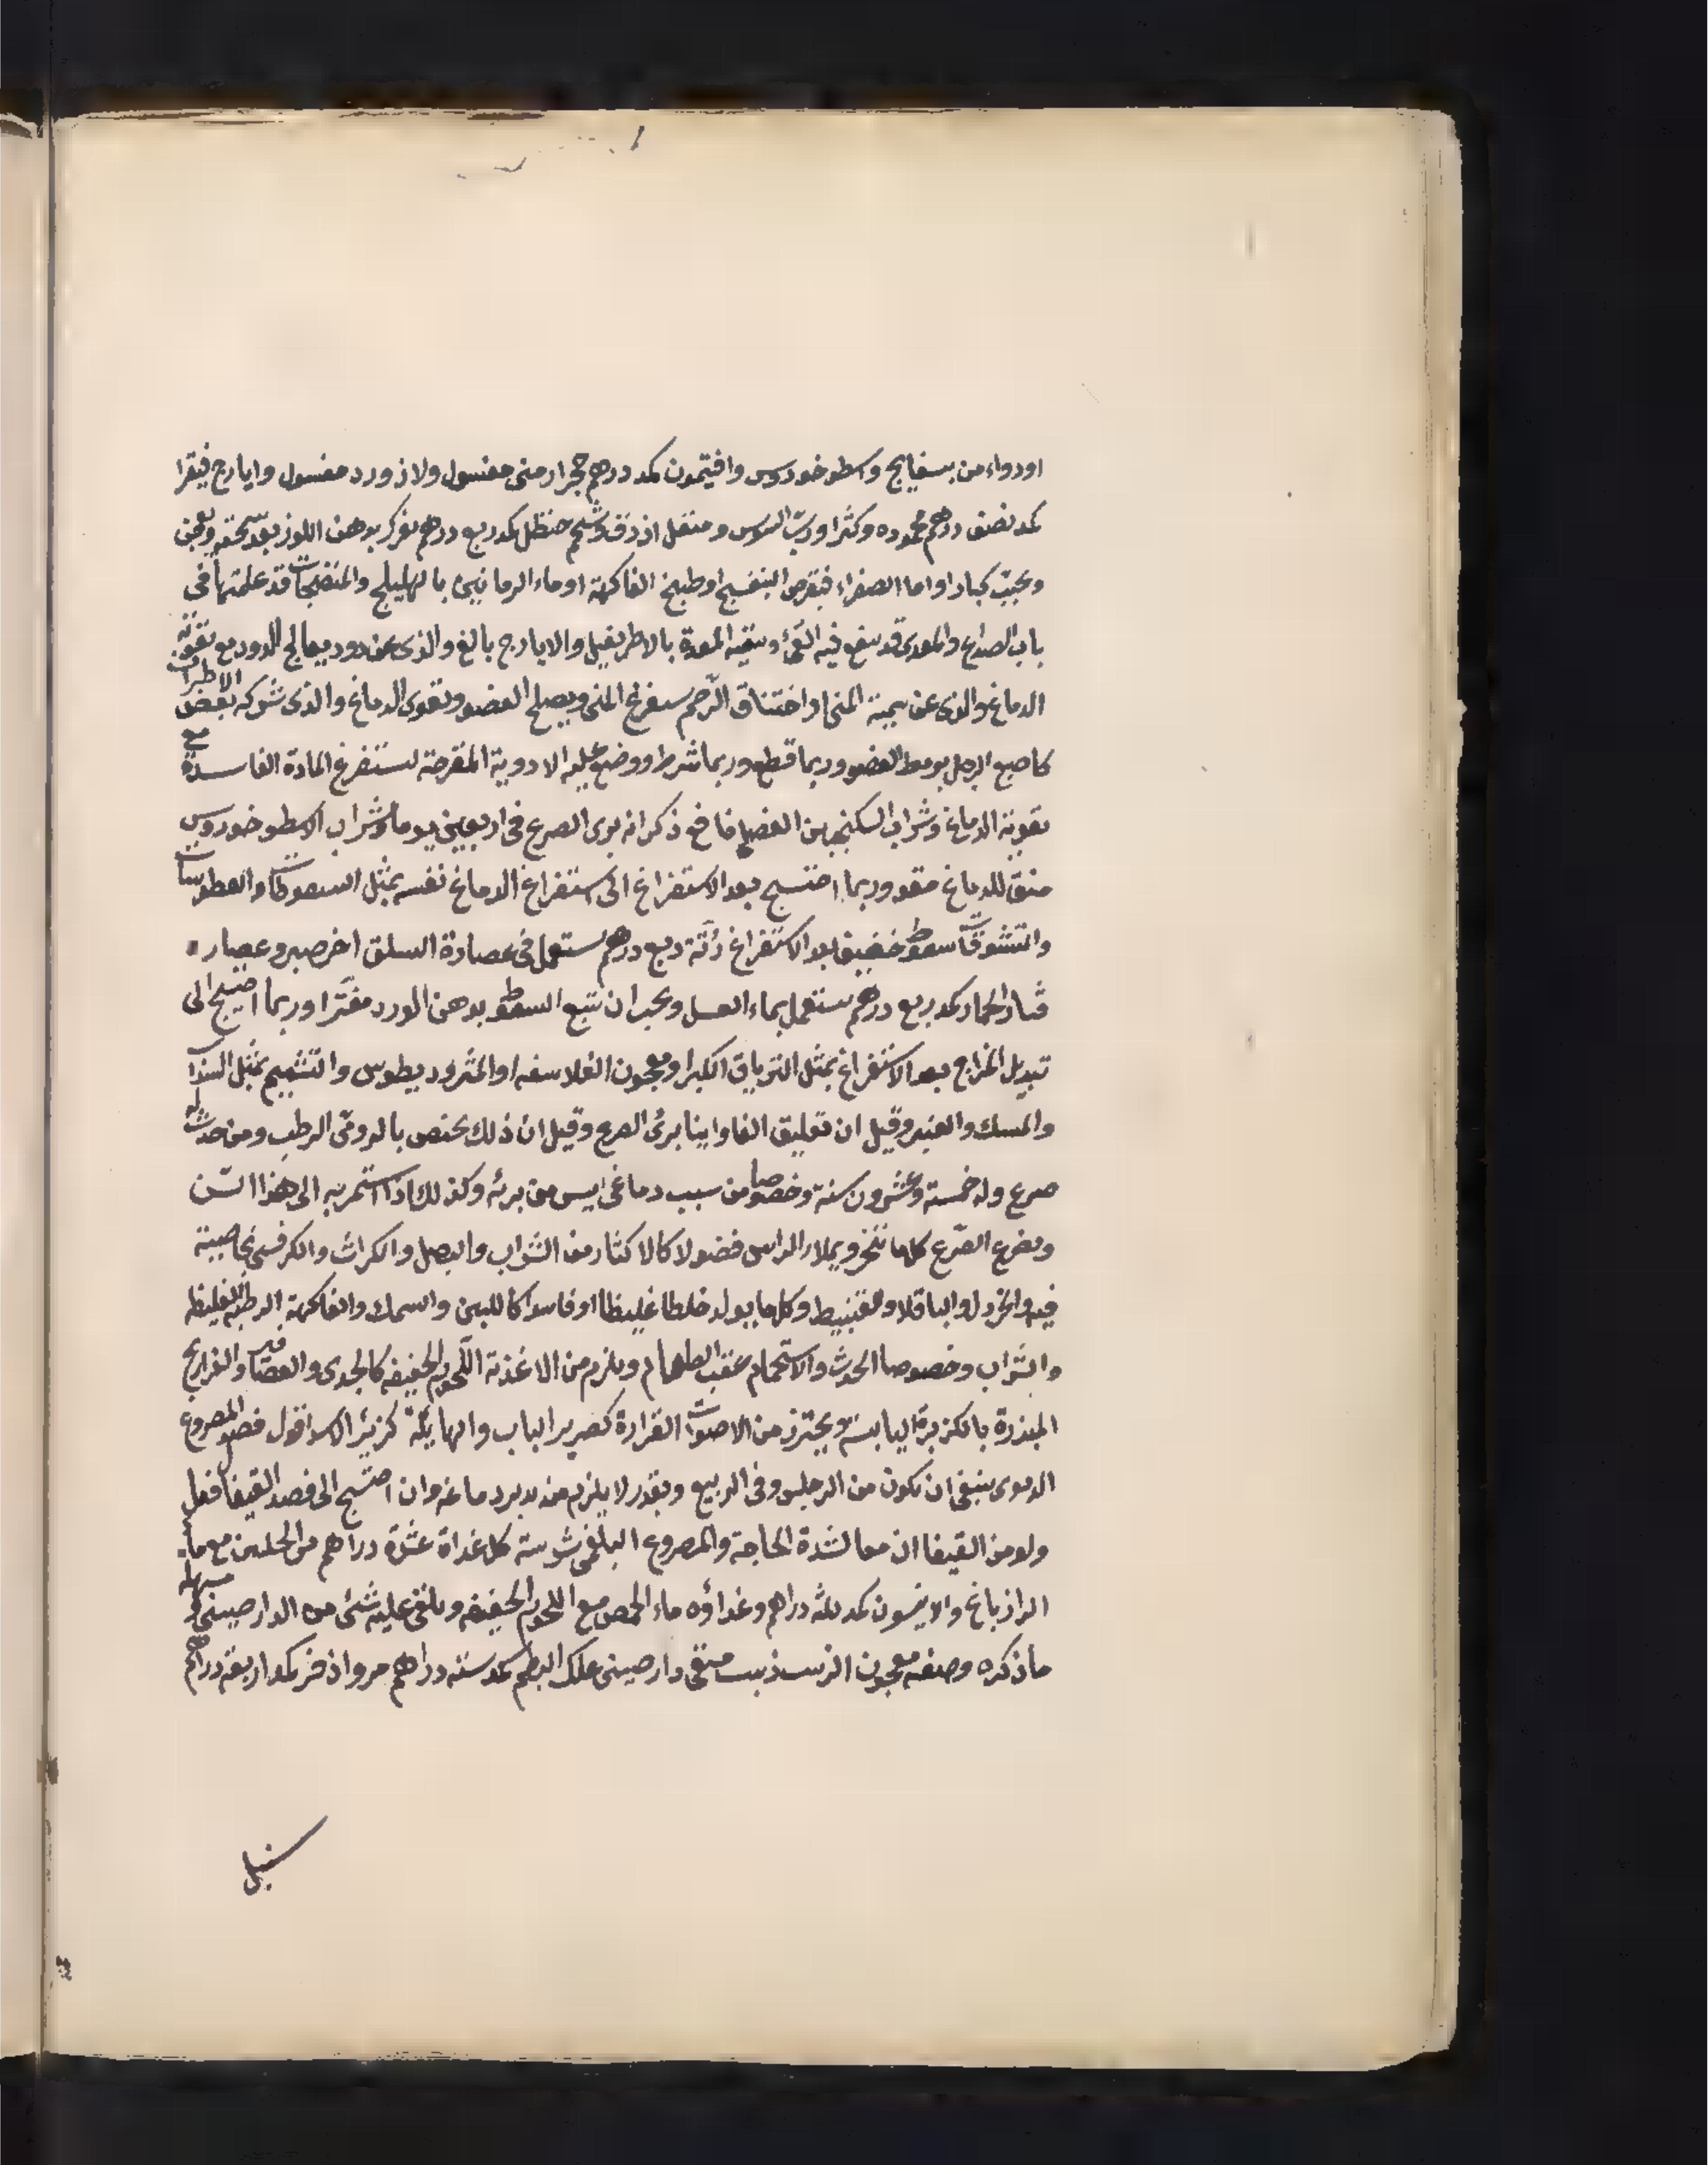 او دواء من بسفايج واسطوخودوس وافتيمون كمد درهم حجر ارمنى مغسول ولازورد مغسول وايارج فيقرا
كمد نصف درهم محموده وكثيرا ورب السوس ومقل ازرق وشحم حنظل كمد ربع درهم يفرك بدهن اللوز بعد سحقه ويعجن
ويحبب كبارا واما الصفراء فبقرص البنفسج او طبيخ الفاكهة او ماء الرمانين بالهليلج والمنضجات قد علمتها فى
باب الصداع والمعدى قد ينفع فيه القئ وتنقية المعدة بالاطريفيل والايارج بالغ والذى عن دود يعالج الدود مع تقوية
الدماغ والذى عن سمية المنى او اختناق الرحم يستفرغ المنى ويصلح العضو ويقوى الدماغ والذى شركه بعض الاطراف
كاصبع الرجل يربط العضو وربما قطع وربما شرط ووضع عليه الادوية المقرحة لتستفرغ المادة الفاسدة مع
تقوية الدماغ وشراب السكنجبين العنصلى نافع ذكر انه يبرى الصرع فى اربعين يوما وشراب الاسطوخودوس
منق للدماغ مقو وربما احتيج بعد الاستفراغ الى استفراغ الدماغ نفسه بمثل السعوطات والعطوسات
والنشوقات سعوط خفيف بعد الاستفراغ رتة ربع درهم يستعمل فى عصارة السلق اخر صبر وعصار
قثاء الحمار كمد ربع درهم يستعمل بماء العسل ويجب ان يتبع السعوط بدهن الورد مفترا وربما احتيج الى
تبديل المزاج بعد الاستفراغ بمثل الترياق الكبير او معجون الفلاسفه او المثروديطوس والتشميم بمثل السذاب
والمسك والعنبر وقيل ان تعليق الفاوانيا يبرئ الصرع وقيل ان ذلك يختص بالرومى الرطب ومن حدث له
صرع وله خمسة وعشرون سنة وخصوصا من سبب دماغى ايس من برئه وكذلك اذا استمر به الى هذا السن
ويصرع الصرع كلما يبخر ويملاء الراس فضولا كالاكثار من الشراب والبصل والكراث والكرفس بخاصية
فيه والخردل والباقلا والقنبيط وكلما يولد خلطا غليظا او فاسدا كاللبن والسمك والفاكهة الرطبة الغليظه
والشراب وخصوصا الحدث والاستحمام عقب الطعام ويلزم من الاغذية اللحوم الخفيفه كالجدى والعصافير والفراريج
المبزرة بالكزبرة اليابسة ويحترز من الاصوات القرارة كصرير الباب والهايلة كزئير الاسد اقول فصد المصروع
الدموى ينبغى ان يكون من الرجلين وفى الربيع وبقدر لا يلزم منه يبرد دماغه وان احتيج الى فصد القيفال فعل
ولو من القيفالان معا لشدة الحاجة والمصروع البلغمى شربته كل غداة عشرة دراهم من الجلنجبين مع ماء
الرازيانج والانيسون كمد ثلثه دراهم وغداؤه ماء الحمص مع اللحوم الخفيفه ويلقى عليه شئ من الدارصينى ومسهله
ما ذكره وصفة معجون الزبيب زبيب منقى دارصينى علك البطم كمد سته دراهم مر واذخر كمد اربعة دراهم
سنبل